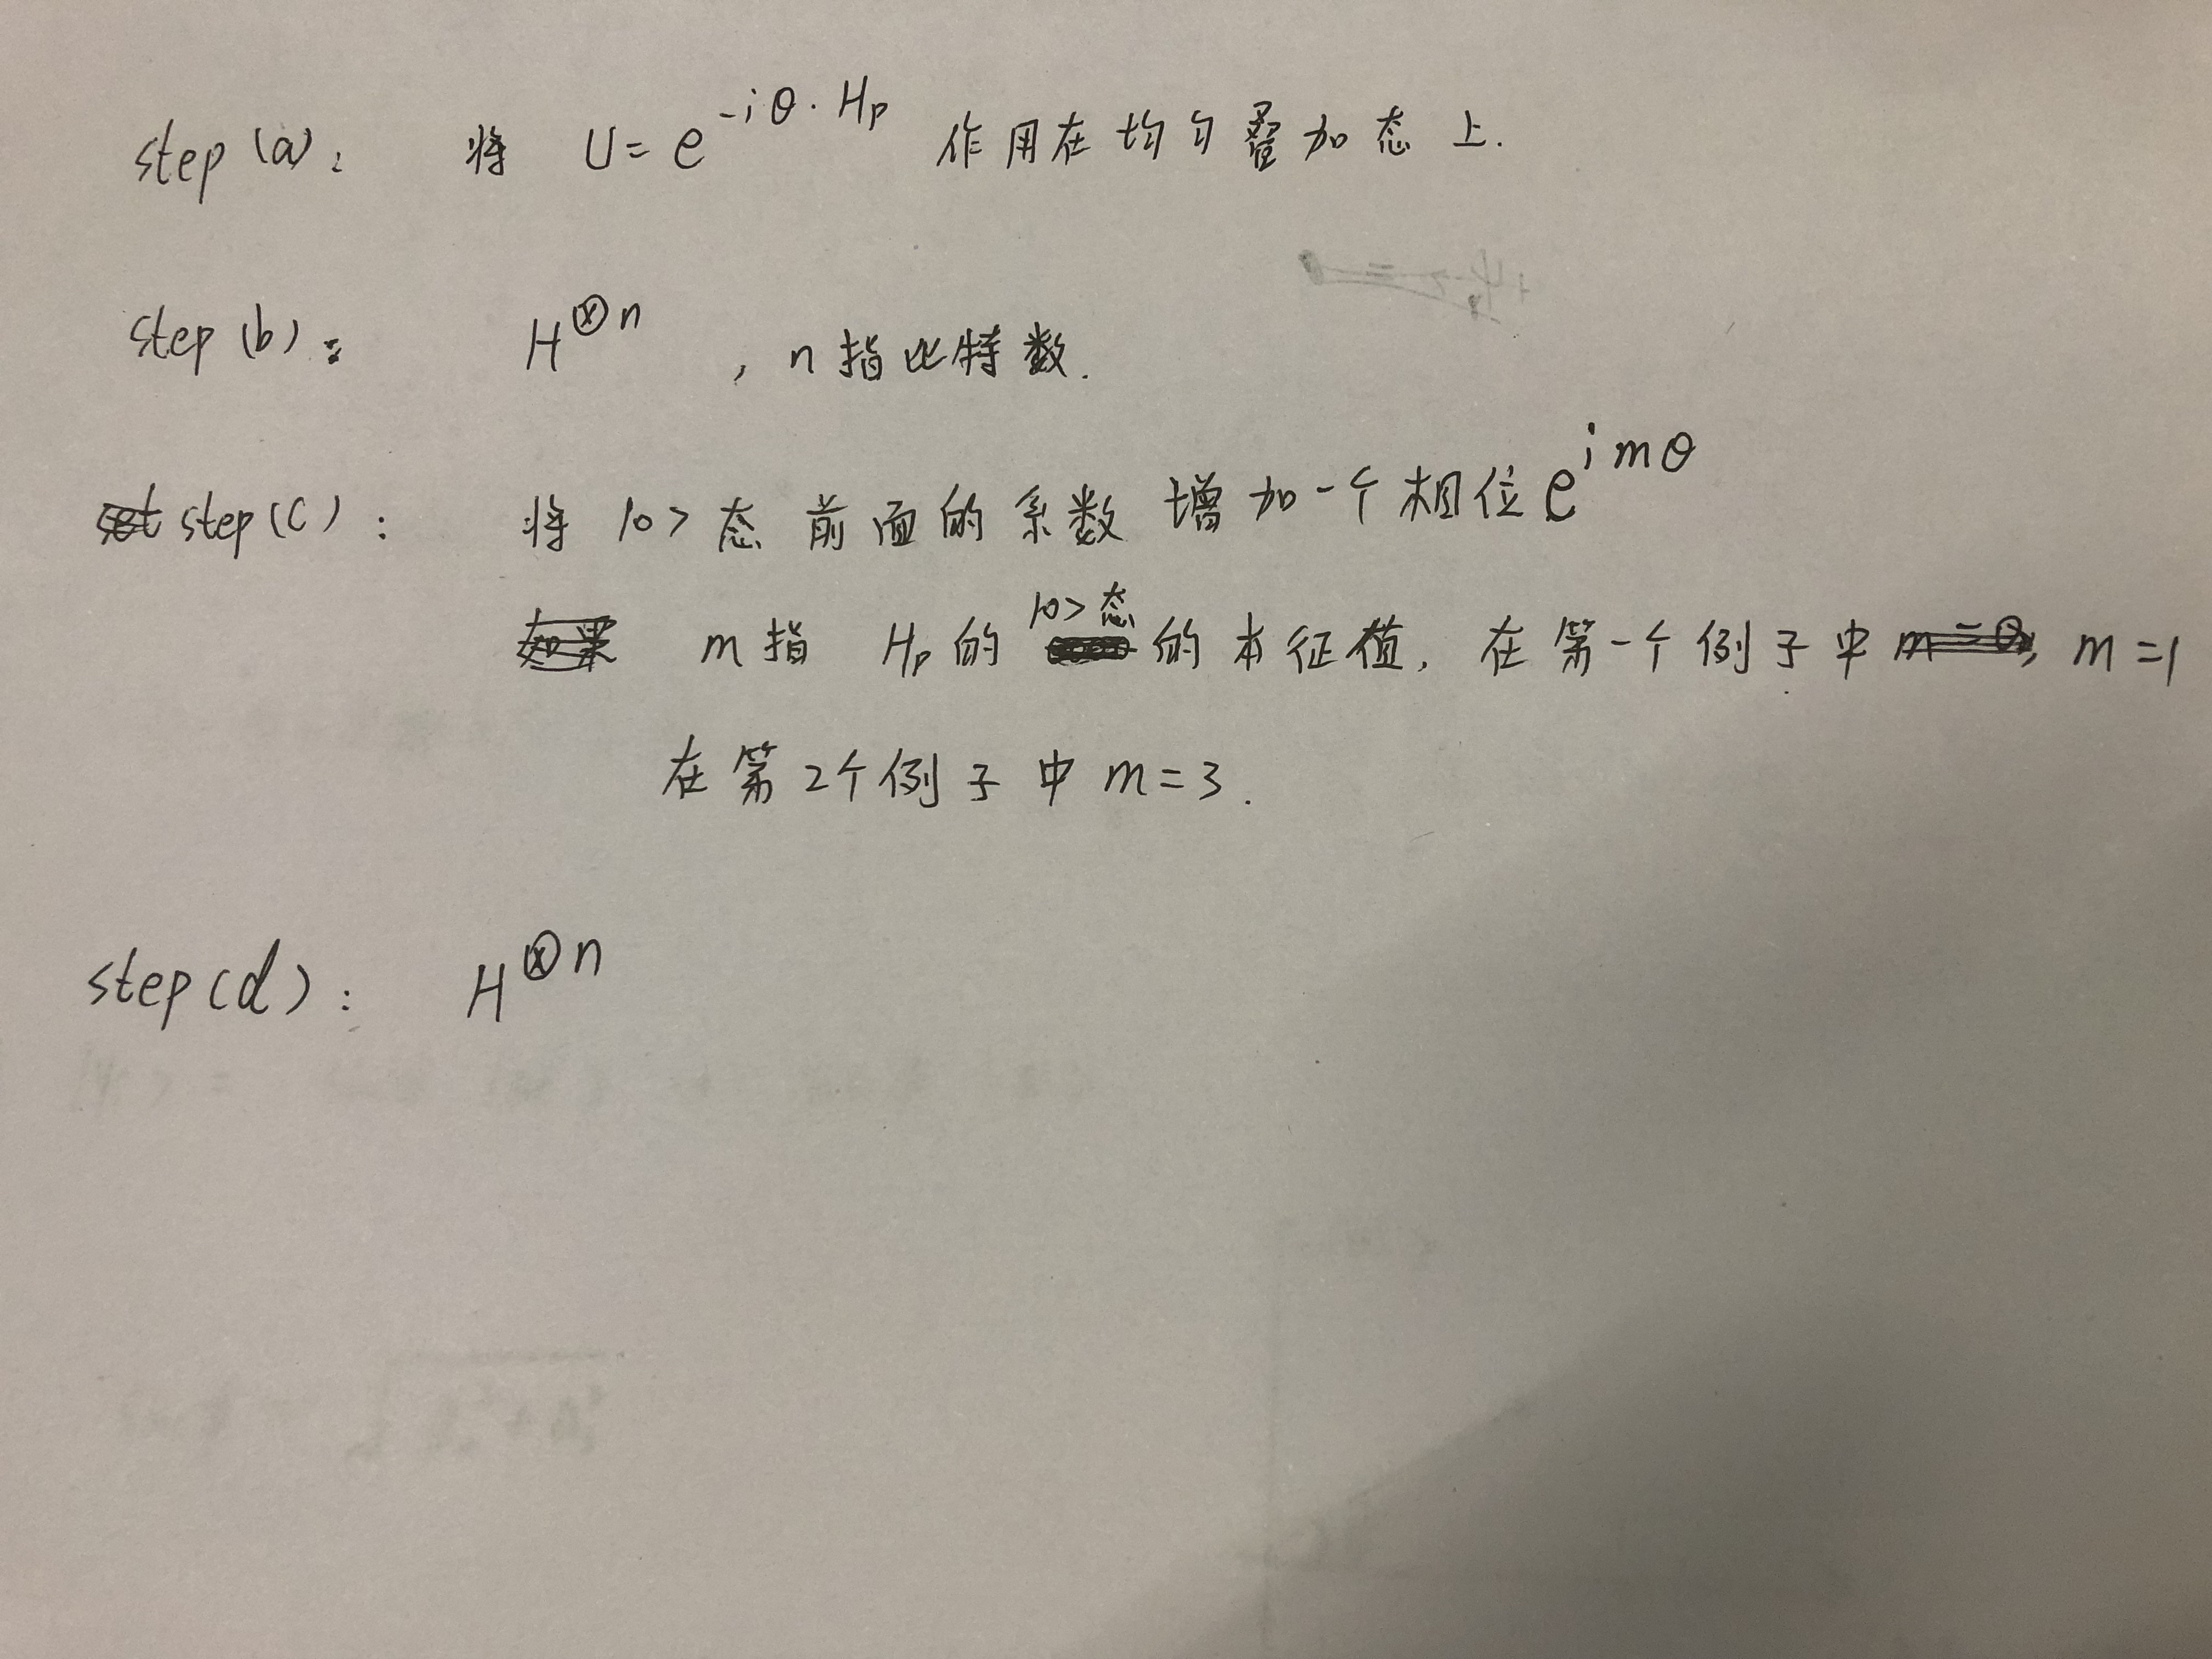 step (a): 将 U = e^{-iθ·H_P} 作用在均匀叠加态上.
step (b): H^{⊗n} , n指比特数.
step (c): 将 |0> 态前面的系数增加一个相位 e^{imθ}
m指 H_P的 |0>态 的本征值, 在第一个例子中 m=1
在第2个例子中 m=3.
step (d): H^{⊗n}